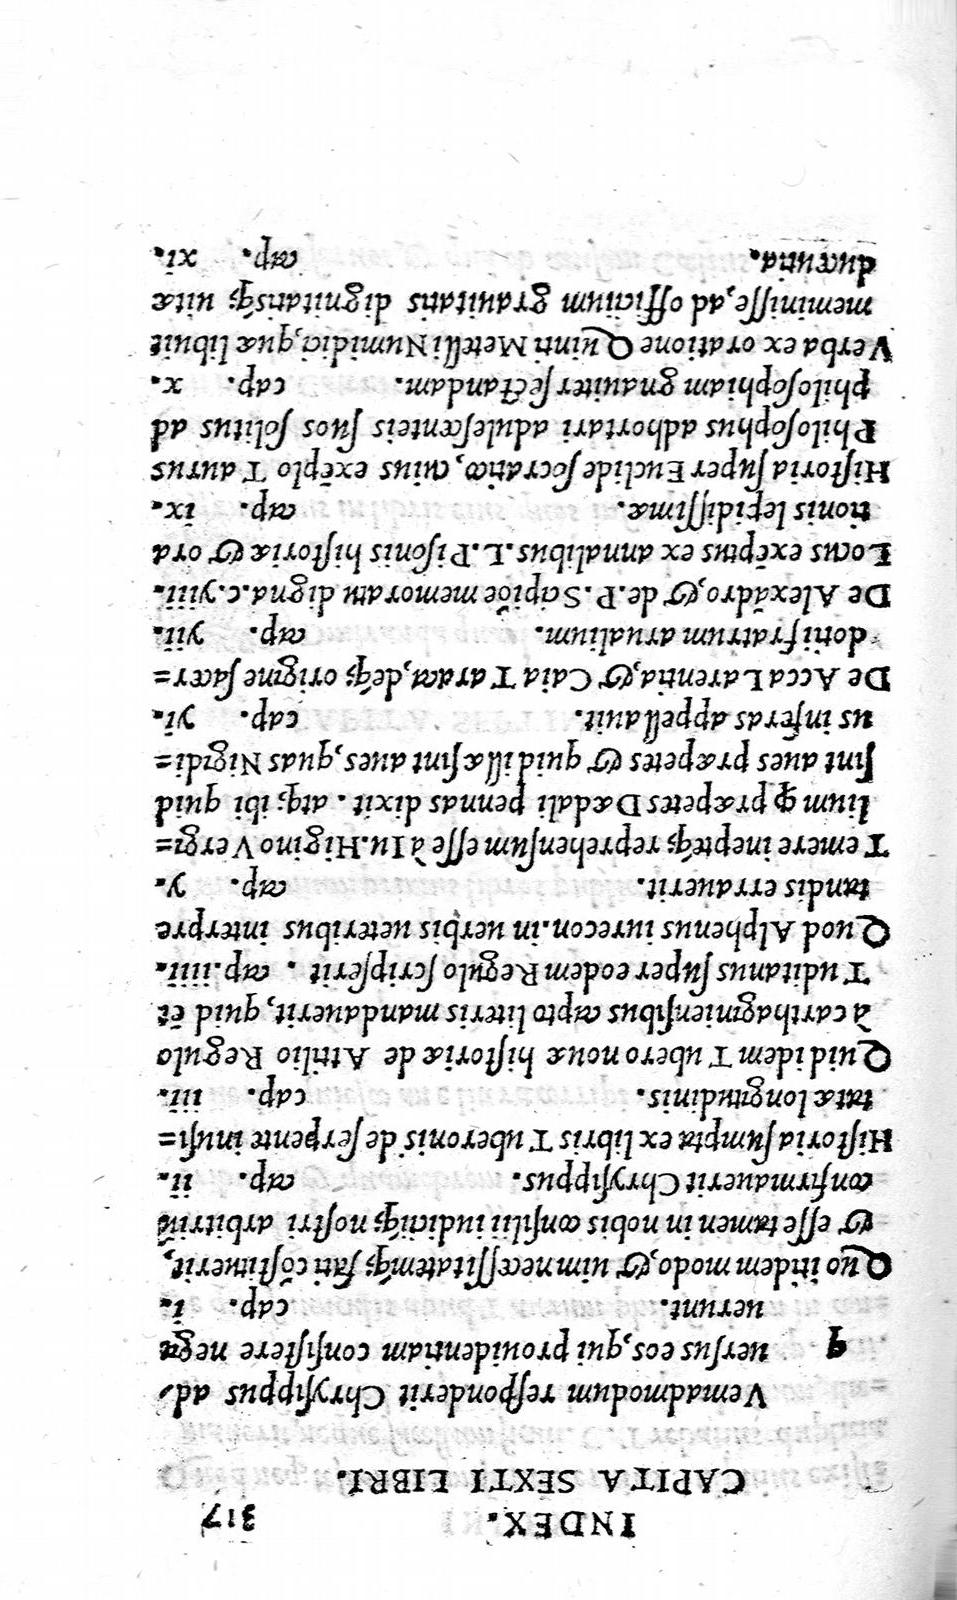 INDEX. 317
CAPITA SEXTI LIBRI.
q Vemadmodum reſponderit Chryſippus ad,
uerſus eos, qui prouidentiam conſiſtere nega
uerunt. cap. i.
Quo itidem modo, & uim neceſſitatemq́; fati cōſtituerit,
& eſſe tamen in nobis conſilii iudiciiq́; noſtri arbitriũ
confirmauerit Chryſippus. cap. ii.
Hiſtoria ſumpta ex libris Tuberonis de ſerpente inuſi=
tatæ longitudinis. cap. iii.
Quid idem Tubero nouæ hiſtoriæ de Attilio Regulo
à carthaginienſibus capto literis mandauerit, quid et
Tuditanus ſuper eodem Regulo ſcripſerit. cap. iiii.
Quod Alphenus iureccon. in uerbis ueteribus interpre
tandis errauerit. cap. y.
Temere inepteq́; reprehenſum eſſe à Iu. Higino Vergi=
lium ꝙ præpetes Dædali pennas dixit. atq; ibi quid
ſint aues præpetes & quid illæ ſint aues, quas Nigidi=
us inferas appellauit. cap. yi.
De Acca Larentia, & Caia Taracia, deq́; origine ſacer=
dotii fratrum arualium. cap. yii.
De Alexādro, & de. P. Scipiōe memoratu digna. c. yiii.
Locus exēptus ex annalibus. L. Piſonis hiſtoriæ & ora
tionis lepidiſſimæ. cap. ix.
Hiſtoria ſuper Euclide ſocratico, cuius exēplo Taurus
Philoſophus adhortari aduleſcenteis ſuos ſolitus ad
philoſophiam gnauiter ſectandam. cap. x.
Verba ex oratione Quinti Metelli Numidici, quæ libuit
meminiſſe, ad officium grauitatis dignitatisq́; uitæ
ducentia. cap. xi.